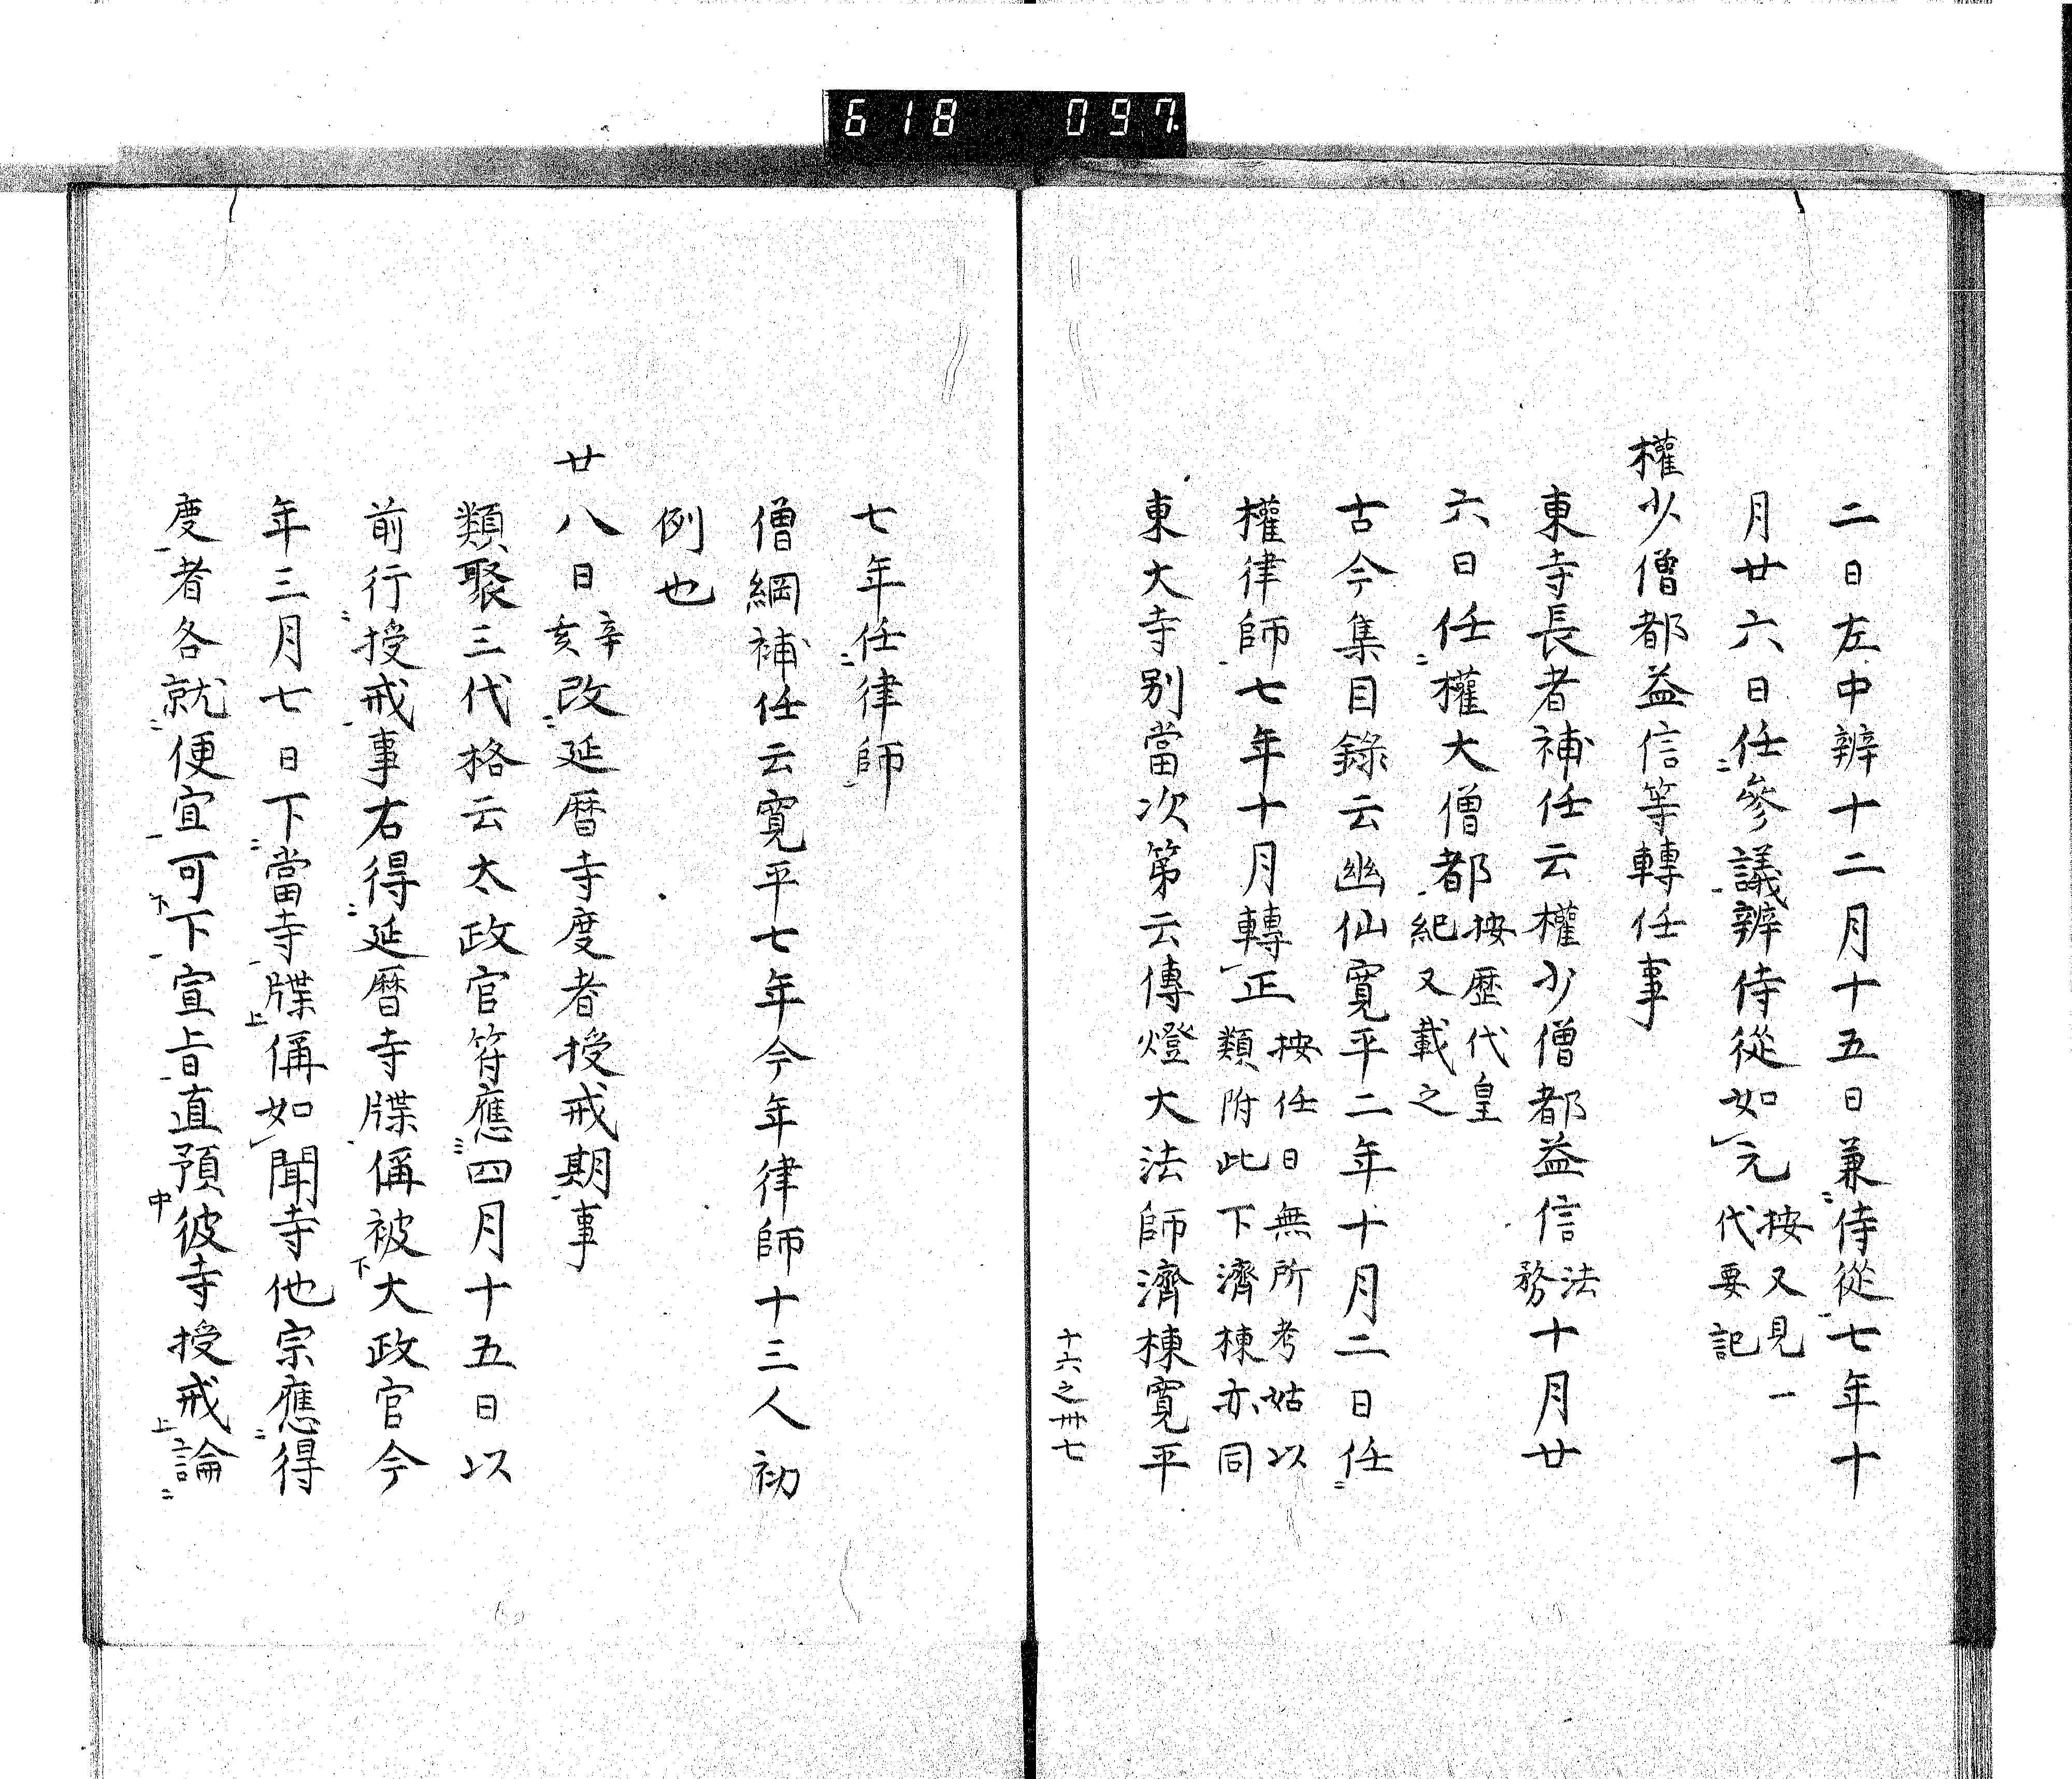 618 097
二日左中辨十二月十五日兼侍從七年十
月廿六日任參議辨侍從如元按又見一代要記
權少僧都益信等轉任事
東寺長者補任云權少僧都益信法務十月廿
六日任權大僧都按歷代皇紀又載之
古今集目錄云幽仙寛平二年十月二日任
權律師七年十月轉正按任日無所考姑以類附此下濟棟亦同
東大寺別當次第云傳燈大法師濟棟寛平
十六之卅七
七年任律師
僧綱補任云寛平七年今年律師十三人初
例也
廿八日辛亥改延暦寺度者授戒期事
類聚三代格云太政官符應四月十五日以
前行授戒事右得延暦寺牒偁被大政官今
年三月七日下當寺牒偁如聞寺他宗應得
度者各就便宜可下宣旨直預彼寺授戒論